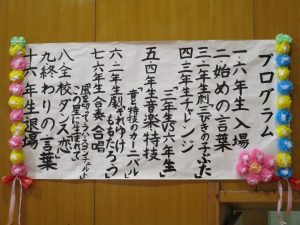 プログラム
一.六年生入場
二.始めの言葉
三.一年生劇「三びきの子ぶた」
四.三年生チャレンジ
「三年生VS六年生」
五.四年生音楽特技
「音と特技のカーニバル」
六.二年生劇「それゆけ
ももたろう」
七.六年生合奏合唱
この星に生まれて
八.全校ダンス「恋」
九.終わりの言葉
十.六年生退場